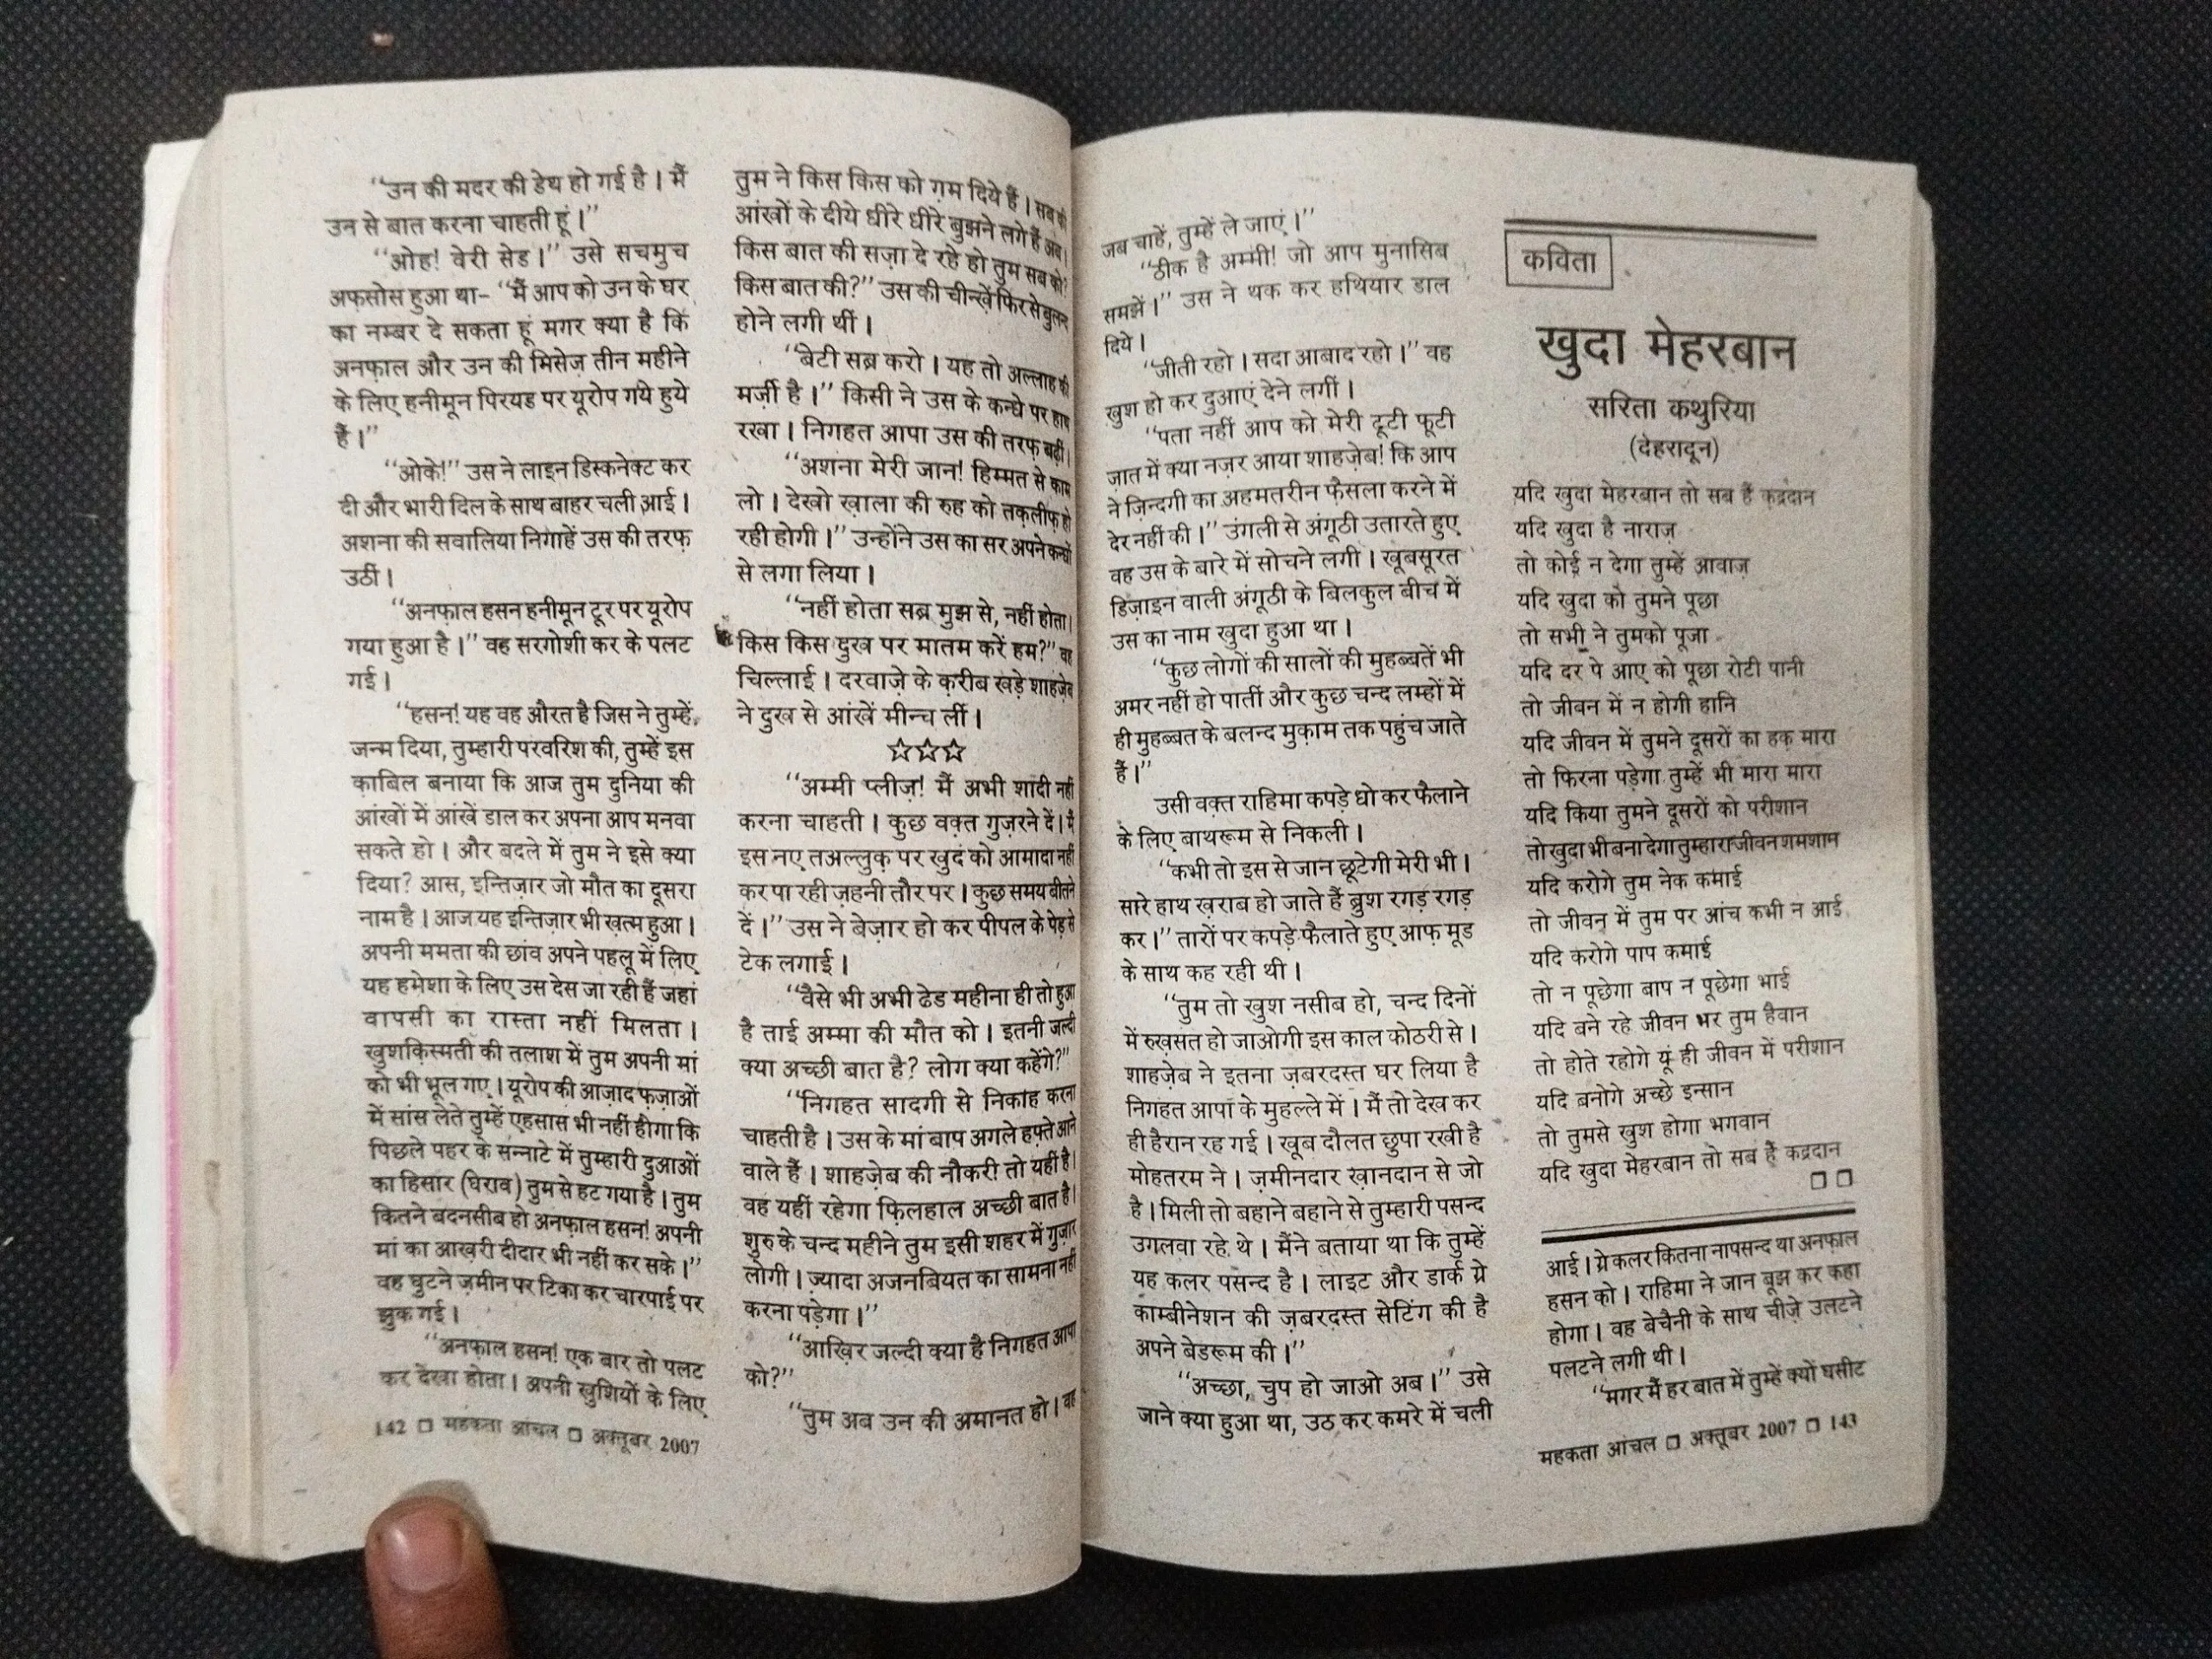 “उन की मदर की डेथ हो गई है। मैं
उन से बात करना चाहती हूं।”
“ओह! वेरी सेड।” उसे सचमुच
अफ़सोस हुआ था- “मैं आप को उन के घर
का नम्बर दे सकता हूं मगर क्या है कि
अनफ़ाल और उन की मिसेज़ तीन महीने
के लिए हनीमून पिरयड पर यूरोप गये हुये
हैं।”
“ओके!” उस ने लाइन डिस्कनेक्ट कर
दी और भारी दिल के साथ बाहर चली आई।
अशना की सवालिया निगाहें उस की तरफ़
उठीं।
“अनफ़ाल हसन हनीमून टूर पर यूरोप
गया हुआ है।” वह सरगोशी कर के पलट
गई।
“हसन! यह वह औरत है जिस ने तुम्हें
जन्म दिया, तुम्हारी परवरिश की, तुम्हें इस
क़ाबिल बनाया कि आज तुम दुनिया की
आंखों में आंखें डाल कर अपना आप मनवा
सकते हो। और बदले में तुम ने इसे क्या
दिया? आस, इन्तिज़ार जो मौत का दूसरा
नाम है। आज यह इन्तिज़ार भी ख़त्म हुआ।
अपनी ममता की छांव अपने पहलू में लिए
यह हमेशा के लिए उस देस जा रही हैं जहां
वापसी का रास्ता नहीं मिलता।
खुशक़िस्मती की तलाश में तुम अपनी मां
को भी भूल गए। यूरोप की आज़ाद फ़ज़ाओं
में सांस लेते तुम्हें एहसास भी नहीं होगा कि
पिछले पहर के सन्नाटे में तुम्हारी दुआओं
का हिसार (घेराव) तुम से हट गया है। तुम
कितने बदनसीब हो अनफ़ाल हसन! अपनी
मां का आख़री दीदार भी नहीं कर सके।”
वह घुटने ज़मीन पर टिका कर चारपाई पर
झुक गई।
“अनफ़ाल हसन! एक बार तो पलट
कर देखा होता। अपनी खुशियों के लिए
142 □ महकता आंचल □ अक्तूबर 2007
तुम ने किस किस को ग़म दिये हैं। सब की
आंखों के दीये धीरे धीरे बुझने लगे हैं अब।
किस बात की सज़ा दे रहे हो तुम सब को?
किस बात की?” उस की चीन्ख़ें फिर से बुलन्द
होने लगी थीं।
“बेटी सब्र करो। यह तो अल्लाह की
मर्ज़ी है।” किसी ने उस के कन्धे पर हाथ
रखा। निगहत आपा उस की तरफ़ बढ़ीं।
“अशना मेरी जान! हिम्मत से काम
लो। देखो ख़ाला की रुह को तकलीफ़ हो
रही होगी।” उन्होंने उस का सर अपने कन्धों
से लगा लिया।
“नहीं होता सब्र मुझ से, नहीं होता।
किस किस दुख पर मातम करें हम?” वह
चिल्लाई। दरवाज़े के क़रीब खड़े शाहज़ेब
ने दुख से आंखें मीन्च लीं।
☆☆☆
“अम्मी प्लीज़! मैं अभी शादी नहीं
करना चाहती। कुछ वक़्त गुज़रने दें। मैं
इस नए तअल्लुक़ पर खुद को आमादा नहीं
कर पा रही ज़हनी तौर पर। कुछ समय बीतने
दें।” उस ने बेज़ार हो कर पीपल के पेड़ से
टेक लगाई।
“वैसे भी अभी ढेड महीना ही तो हुआ
है ताई अम्मा की मौत को। इतनी जल्दी
क्या अच्छी बात है? लोग क्या कहेंगे?”
“निगहत सादगी से निकाह करना
चाहती है। उस के मां बाप अगले हफ़्ते आने
वाले हैं। शाहज़ेब की नौकरी तो यहीं है।
वह यहीं रहेगा फ़िलहाल अच्छी बात है।
शुरु के चन्द महीने तुम इसी शहर में गुज़ार
लोगी। ज़्यादा अजनबियत का सामना नहीं
करना पड़ेगा।”
“आख़िर जल्दी क्या है निगहत आपा
को?”
“तुम अब उन की अमानत हो। वह
जब चाहें, तुम्हें ले जाएं।”
“ठीक है अम्मी! जो आप मुनासिब
समझें।” उस ने थक कर हथियार डाल
दिये।
“जीती रहो। सदा आबाद रहो।” वह
खुश हो कर दुआएं देने लगीं।
“पता नहीं आप को मेरी टूटी फूटी
ज़ात में क्या नज़र आया शाहज़ेब! कि आप
ने ज़िन्दगी का अहमतरीन फ़ैसला करने में
देर नहीं की।” उंगली से अंगूठी उतारते हुए
वह उस के बारे में सोचने लगी। खूबसूरत
डिज़ाइन वाली अंगूठी के बिलकुल बीच में
उस का नाम खुदा हुआ था।
“कुछ लोगों की सालों की मुहब्बतें भी
अमर नहीं हो पातीं और कुछ चन्द लम्हों में
ही मुहब्बत के बलन्द मुक़ाम तक पहुंच जाते
हैं।”
उसी वक़्त राहिमा कपड़े धो कर फैलाने
के लिए बाथरूम से निकली।
“कभी तो इस से जान छूटेगी मेरी भी।
सारे हाथ ख़राब हो जाते हैं ब्रुश रगड़ रगड़
कर।” तारों पर कपड़े फैलाते हुए आफ़ मूड
के साथ कह रही थी।
“तुम तो खुश नसीब हो, चन्द दिनों
में रुख़सत हो जाओगी इस काल कोठरी से।
शाहज़ेब ने इतना ज़बरदस्त घर लिया है
निगहत आपा के मुहल्ले में। मैं तो देख कर
ही हैरान रह गई। खूब दौलत छुपा रखी है
मोहतरम ने। ज़मीनदार ख़ानदान से जो
है। मिली तो बहाने बहाने से तुम्हारी पसन्द
उगलवा रहे थे। मैंने बताया था कि तुम्हें
यह कलर पसन्द है। लाइट और डार्क ग्रे
काम्बीनेशन की ज़बरदस्त सेटिंग की है
अपने बेडरूम की।”
“अच्छा, चुप हो जाओ अब।” उसे
जाने क्या हुआ था, उठ कर कमरे में चली
कविता
खुदा मेहरबान
सरिता कथुरिया
(देहरादून)
यदि खुदा मेहरबान तो सब हैं क़द्रदान
यदि खुदा है नाराज़
तो कोई न देगा तुम्हें आवाज़
यदि खुदा को तुमने पूछा
तो सभी ने तुमको पूजा
यदि दर पे आए को पूछा रोटी पानी
तो जीवन में न होगी हानि
यदि जीवन में तुमने दूसरों का हक़ मारा
तो फिरना पड़ेगा तुम्हें भी मारा मारा
यदि किया तुमने दूसरों को परीशान
तो खुदा भी बना देगा तुम्हारा जीवन शमशाम
यदि करोगे तुम नेक कमाई
तो जीवन में तुम पर आंच कभी न आई
यदि करोगे पाप कमाई
तो न पूछेगा बाप न पूछेगा भाई
यदि बने रहे जीवन भर तुम हैवान
तो होते रहोगे यूं ही जीवन में परीशान
यदि बनोगे अच्छे इन्सान
तो तुमसे खुश होगा भगवान
यदि खुदा मेहरबान तो सब हैं कद्रदान
□ □
आई। ग्रे कलर कितना नापसन्द था अनफ़ाल
हसन को। राहिमा ने जान बूझ कर कहा
होगा। वह बेचैनी के साथ चीज़े उलटने
पलटने लगी थी।
“मगर मैं हर बात में तुम्हें क्यों घसीट
महकता आंचल □ अक्तूबर 2007 □ 143